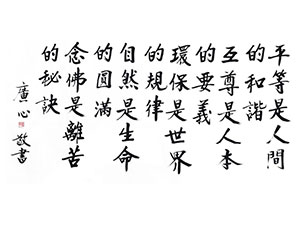 平等是人間
的和諧
互尊是人本
的要義
環保是世界
的規律
自然是生命
的圓滿
念佛是離苦
的秘訣
廣心敬書